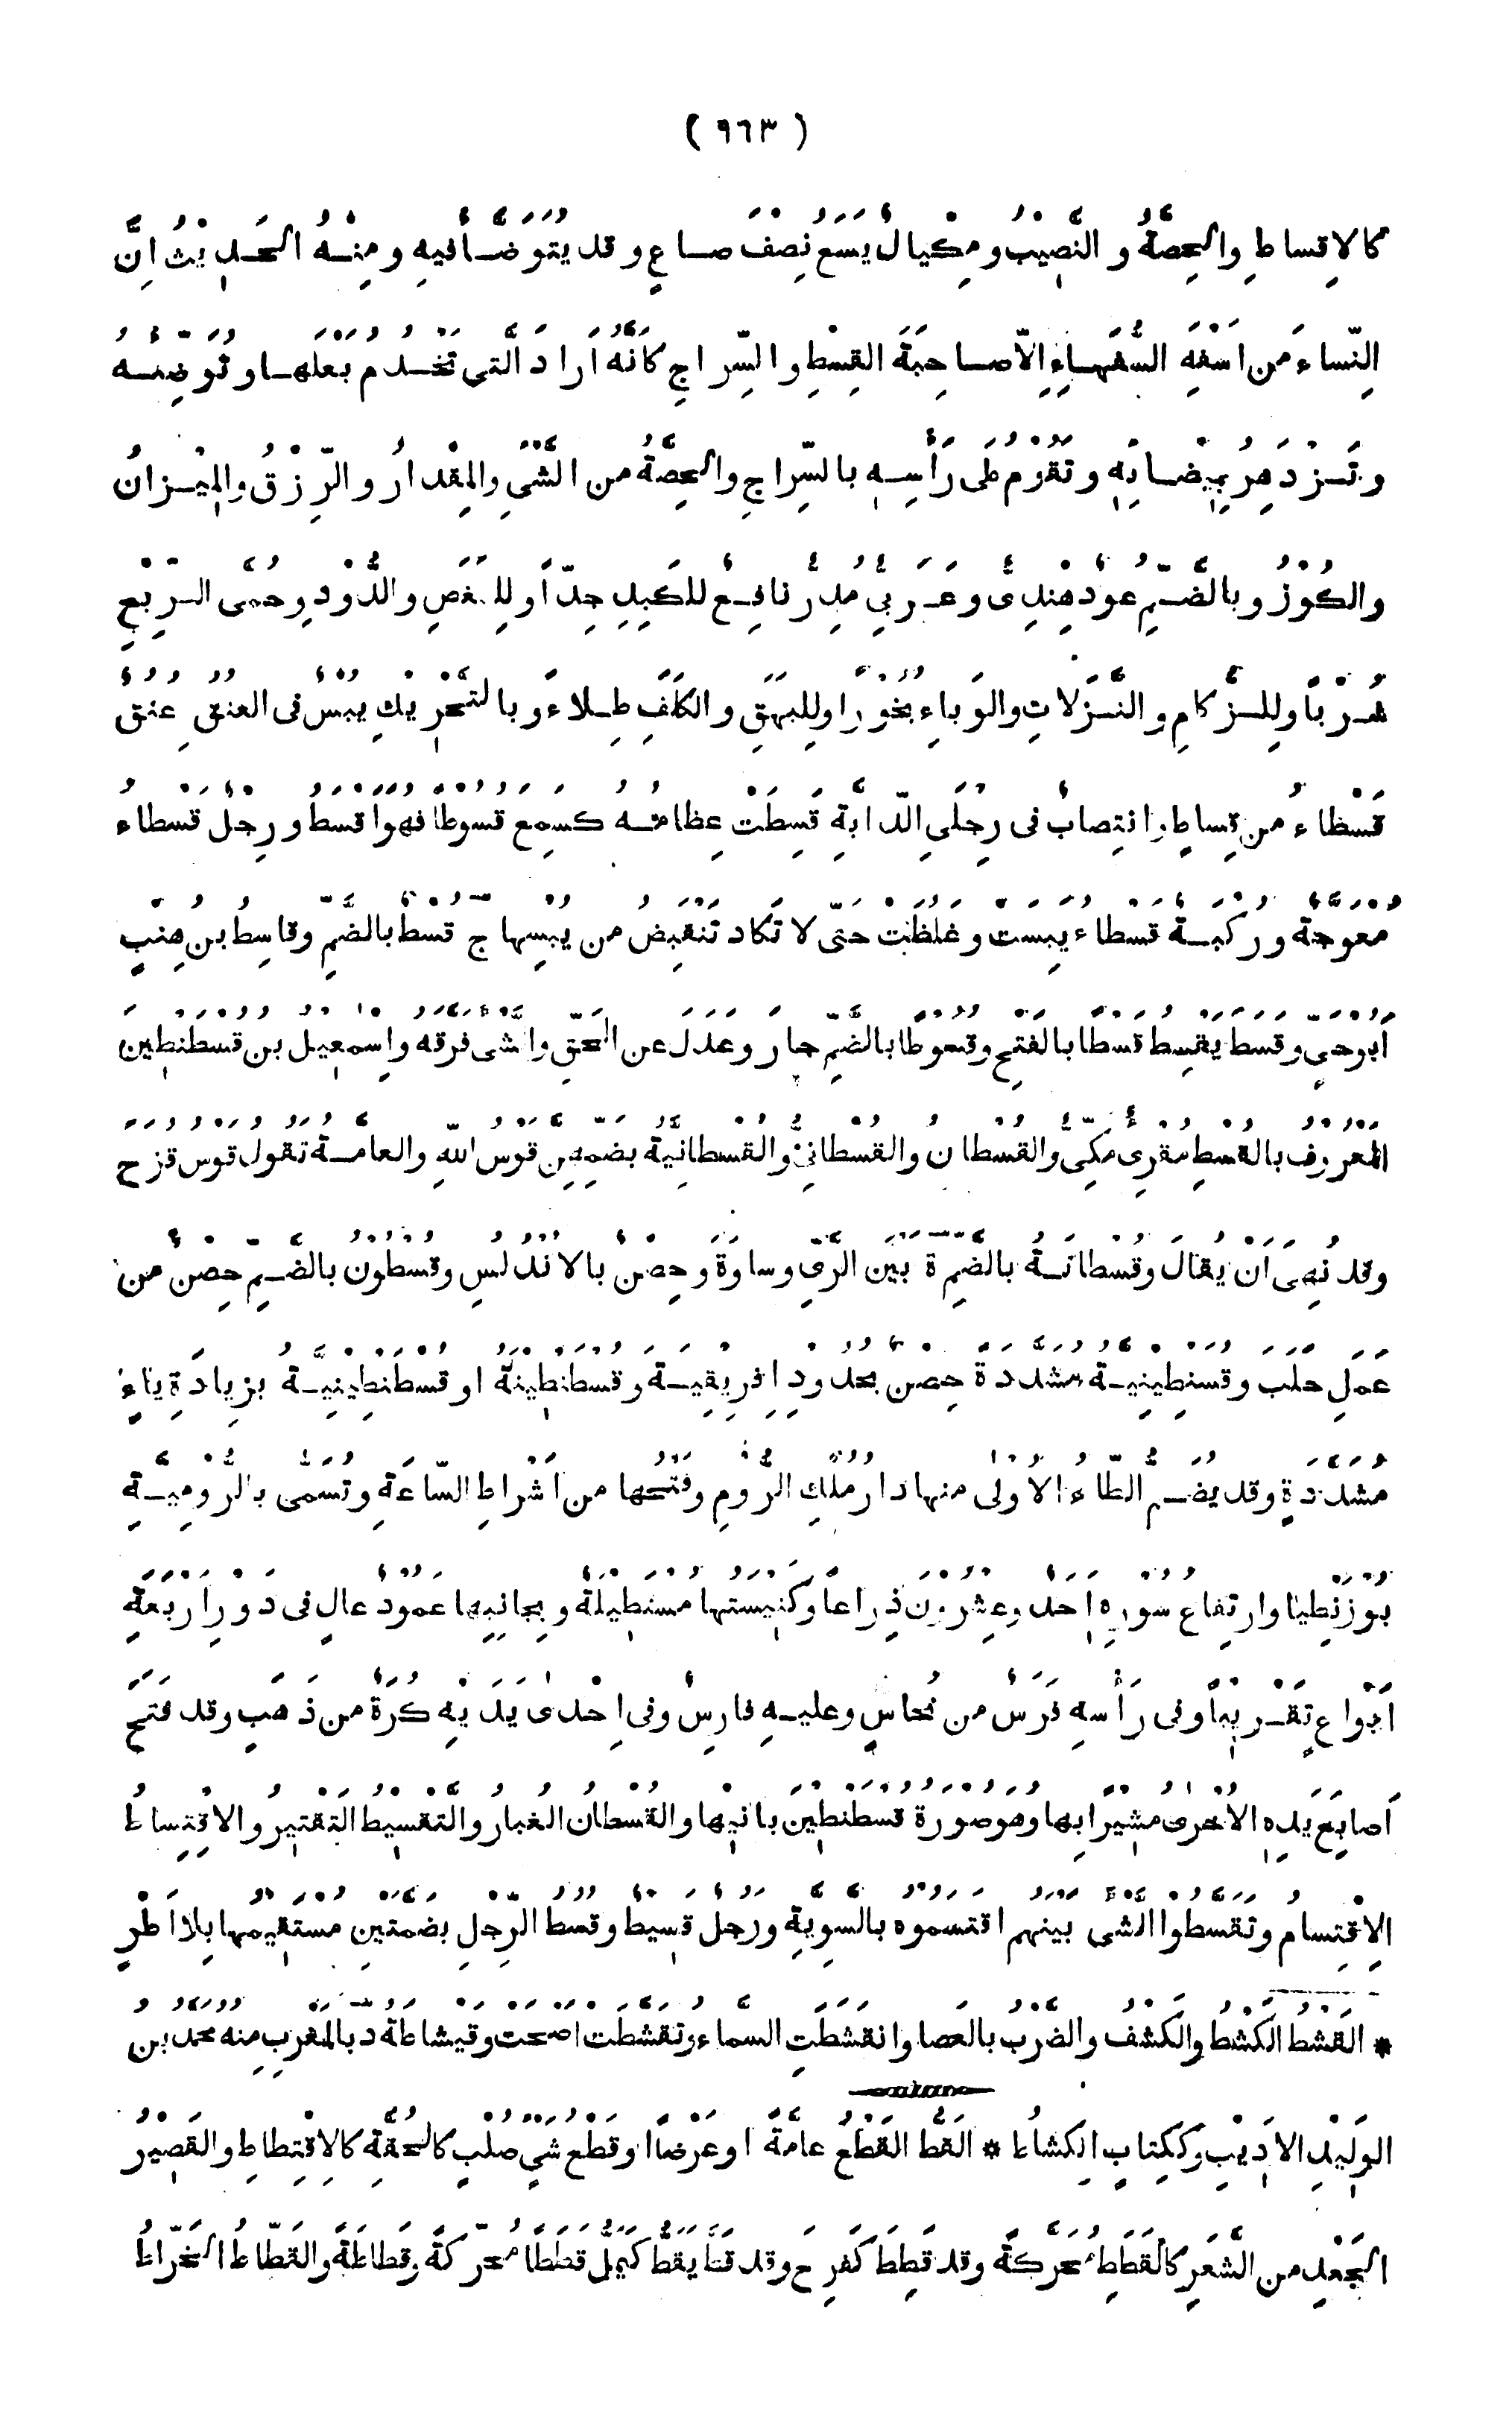 ( ٩٦٣ )
كالاِقساطِ والحِصَّةُ والنَّصِيْبُ ومِكْيالٌ يَسَعُ نِصْفَ صاعٍ وقد يُتَوَضَّأُ فيهِ ومِنْهُ الحَدِيْثُ اِنَّ
النِّساءَ مِن اَسْفَهِ السُّفَهاءِ اِلاّ صاحِبَةَ القِسْطِ والسِّراجِ كَاَنَّهُ اَرادَ الَّتى تَخْدُمُ بَعْلَها وتُوَضِّئُهُ
وتَزْدَهِرُ بِمِيْضَاتِهِ وتَقُوْمُ على رَأْسِهِ بالسِّراجِ والحِصَّةُ من الشَّىْءِ والمِقْدارُ والرِّزْقُ والمِيْزانُ
والكُوْزُ وبالضَّمِّ عُوْدٌ هِنْدِىٌّ وعَرَبِىٌّ مُدِرٌّ نافِعٌ للكَبِدِ جِدّاً ولِلمَغَصِ والدُّوْدِ وحُمَّى الرِّبْعِ
شُرْباً ولِلزُّكامِ والنَّزَلاتِ والوَباءِ بُخُوْراً ولِلبَهَقِ والكَلَفِ طِلاءً وبالتَّحْرِيْكِ يُبْسٌ فى العُنُقِ عُنُقٌ
قَسْطاءُ مِن قِساطٍ وانْتِصابٌ فى رِجْلَىِ الدّابَّةِ قَسِطَتْ عِظامُهُ كسَمِعَ قُسُوْطاً فهُوَ اَقْسَطُ ورِجْلٌ قَسْطاءُ
مُعْوَجَّةٌ ورُكْبَةٌ قَسْطاءُ يَبِسَتْ وغَلُظَتْ حتّى لا تَكادُ تَنْقَبِضُ من يُبْسِها ج قُسْطٌ بالضَّمِّ وقاسِطُ بنُ هِنْبٍ
اَبُوْ حَىٍّ وقَسَطَ يَقْسِطُ قَسْطاً بالفَتْحِ وقُسُوْطاً بالضَّمِّ جارَ وعَدَلَ عن الحَقِّ والشَّىْءَ فَرَّقَهُ واِسْمٰعِيْلُ بنُ قُسْطَنْطِيْنَ
المَعْرُوْفُ بالقُسْطِ مُقْرِئٌ مَكِّىٌّ والقُسْطانُ والقُسْطانِىُّ والقُسْطانِيَّةُ بضَمِّهِنَّ قَوْسُ اللّهِ والعامَّةُ تَقُوْلُ قَوْسُ قُزَحَ
وقد نُهِىَ اَنْ يُقالَ وقُسْطانَةُ بالضَّمِّ ة بَيْنَ الرَّىِّ وساوَةَ وحِصْنٌ بالاَنْدَلُسِ وقُسْطُوْنُ بالضَّمِّ حِصْنٌ مِن
عَمَلِ حَلَبَ وقُسَنْطِيْنِيَّةُ مُشَدَّدَةً حِصْنٌ بحُدُوْدِ اِفْرِيْقِيَةَ وقُسْطَنْطِيْنَةُ او قُسْطَنْطِيْنِيَّةُ بزِيادَةِ ياءٍ
مُشَدَّدَةٍ وقد يُضَمُّ الطّاءُ الاُوْلى منها دارُ مَلِكِ الرُّوْمِ وفَتْحُها من اَشْراطِ السّاعَةِ وتُسَمّى بالرُّوْمِيَّةِ
بُوْزَنْطِيَا وارْتِفاعُ سُوْرِهِ اَحَدٌ وعِشْرُوْنَ ذِراعاً وكَنِيْسَتُها مُسْتَطِيْلَةٌ وبِجانِبِها عَمُوْدٌ عالٍ فى دَوْرِ اَرْبَعَةِ
اَبْواعٍ تَقْرِيْباً وفى رَأْسِهِ فَرَسٌ من نُحاسٍ وعليهِ فارِسٌ وفى اِحْدىٰ يَدَيْهِ كُرَةٌ من ذَهَبٍ وقد فَتَحَ
اَصابِعَ يَدِهِ الاُخْرىٰ مُشِيْراً بها وهُوَ صُوْرَةُ قُسْطَنْطِيْنَ بانِيْها والقُسْطانُ الغُبارُ والتَّقْسِيْطُ التَّقْتِيْرُ والاِقْتِساطُ
الاِقْتِسامُ وتَقَسَّطُوا الشَّىْءَ بينهم اقْتَسَمُوهُ بالسَّوِيَّةِ ورَجُلٌ قَسِيْطٌ وقُسُطُ الرِّجْلِ بضَمَّتَيْنِ مُسْتَقِيْمُها بِلا اَطْرٍ
* القَشْطُ الكَشْطُ والكَشْفُ والضَّرْبُ بالعَصا وانْقَشَطَتِ السَّماءُ وتَقَشَّطَتْ اَصْحَتْ وقَيْشاطَةُ د بالمَغْرِبِ مِنه محمَّدُ بنُ
الوَلِيْدِ الاَدِيْبُ وككِتابٍ الكِشاطُ * القَطُّ القَطْعُ عامَّةً او عَرْضاً او قَطْعُ شَىْءٍ صُلْبٍ كالحُقَّةِ كالاِقْتِطاطِ والقَصِيْرُ
الجَعْدُ من الشَّعَرِ كالقَطَطِ مُحَرَّكَةً وقد قَطِطَ كفَرِحَ وقد قَطَّ يَقَطُّ كيَمَلُّ قَطَطاً مُحَرَّكَةً وقَطاطَةً والقَطّاطُ الخَرّاطُ